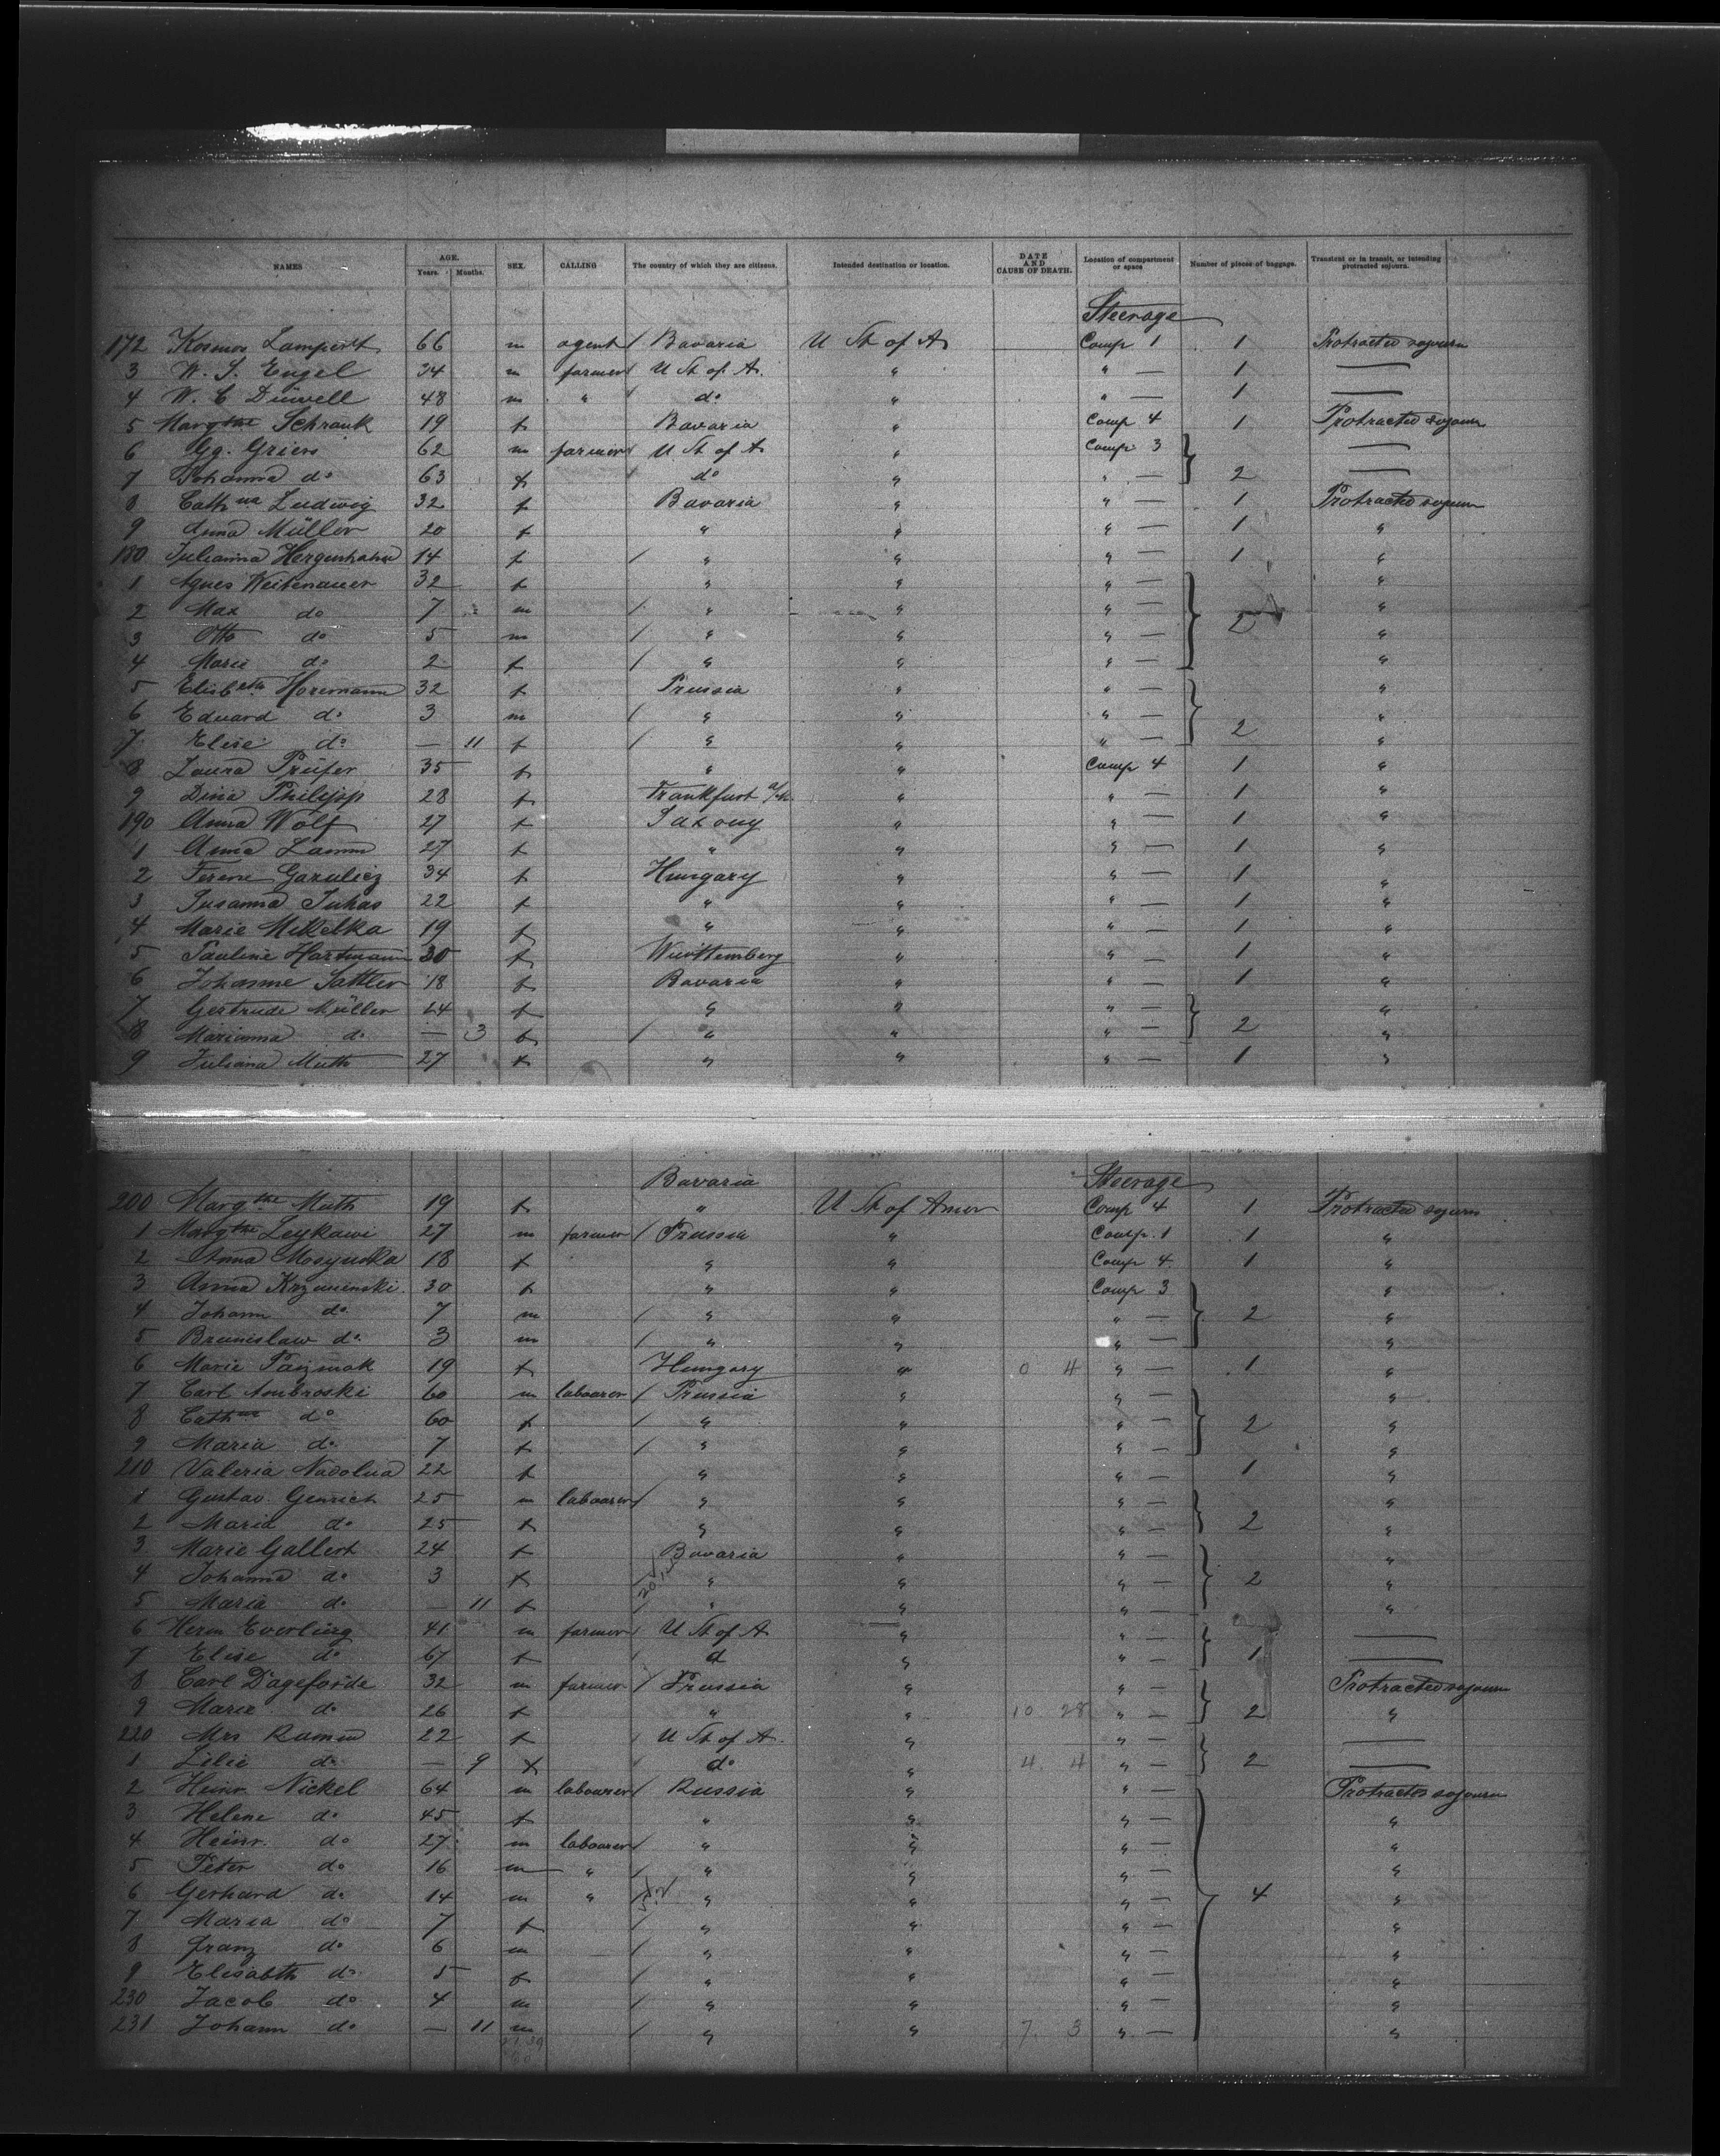 NAMES AGE. Years. Months. SEX. CALLING The country of which they are citizens. Intended destination or location. DATE AND CAUSE OF DEATH. Location of compartment or space Number of pieces of baggage. Transient or in transit, or intending protracted sojourn.
Steerage
172 Kosmos Lampert 66 m agent / Bavaria U St of A Comp 1 1 Protracted sojourn
3 W. S. Engel 34 m farmer / U St of A. " " — 1 —
4 W. C Düwell 48 m " / do " " — 1 —
5 Margthe Schrank 19 f Bavaria " Comp 4 1 Protracted sojourn
6 Gg. Griens 62 m farmer / U St of A " Comp 3 —
7 Johanna do 63 f / do " " — 2 —
8 Cathna Ludwig 32 f Bavaria " " — 1 Protracted sojourn
9 Anna Müller 20 f " " " — 1 "
180 Julianna Hergenhahn 14 f / " " " — 1 "
1 Agnes Weitenauer 32 f " " " — "
2 Max do 7 m / " " " — 2 "
3 Otto do 5 m / " " " — "
4 Marie do 2 f / " " " — "
5 Elisbeth Horimann 32 f Prussia " " — "
6 Eduard do 3 m / " " " — 2 "
7 Elise do — 11 f / " " " — "
8 Laura Prüfer 35 f " " Comp 4 1 "
9 Dina Philipp 28 f Frankfurt a/M. " " — 1 "
190 Anna Wolf 27 f Saxony " " — 1 "
1 Anna Lamm 27 f " " " — 1 "
2 Ferene Garulicz 34 f Hungary " " — 1 "
3 Susanna Juhas 22 f " " " — 1 "
4 Marie Mikelka 19 f " " " — 1 "
5 Pauline Hartmann 30 f Württemberg " " — 1 "
6 Johanne Sattler 18 f Bavaria " " — 1 "
7 Gertrude Müller 24 f " " " — "
8 Marianna do — 3 f / " " " — 2 "
9 Juliana Muth 27 f " " " — 1 "
Bavaria Steerage
200 Margthe Muth 19 f " U St of Amer Comp 4 1 Protracted sojourn
1 Margthe Leykawi 27 m farmer / Prussia " Comp. 1 1 "
2 Anna Mosynska 18 f " " Comp 4. 1 "
3 Anna Krzminski. 30 f " " Comp 3 "
4 Johann do. 7 m / " " " — 2 "
5 Brunislaw do. 3 m / " " " — "
6 Marie Pazmak 19 f Hungary " 0 4 " — 1 "
7 Carl Ambroski 60 m labourer / Prussia " " — "
8 Cathne do 60 f / " " " — 2 "
9 Maria do. 7 f / " " " — "
210 Valeria Nadolna 22 f " " " — 1 "
1 Gustav. Genrich 25 m labourer / " " " — "
2 Maria do 25 f " " " — 2 "
3 Marie Gallert 24 f Bavaria " " — "
4 Johanna do 3 f / " " " — 2 "
5 Maria do — 11 f / " " " — "
6 Herm Everling 41 m farmer / U St of A " " — —
7 Elise do 67 f / d " " — 1 —
8 Carl Dageförde 32 m farmer. / Prussia " " — Protracted sojourn
9 Marie do 26 f " " 10 28 " — 2 "
220 Mrs Ramin 22 f / U St of A. " " — —
1 Lilie do — 9 f / do " 4 4 " — 2 —
2 Heinr. Nickel 64 m labourer / Russia " " — Protracted sojourn
3 Helene do 45 f " " " — "
4 Heinr. do 27 m labourer / " " " — "
5 Peter do 16 m " / " " " — "
6 Gerhard do 14 m " / " " " — 4 "
7 Maria do 7 f / " " " — "
8 Franz do 6 m / " " " — "
9 Elisabth do 5 f / " " " — "
230 Jacob do 4 m / " " " — "
231 Johann do — 11 m / " " 7. 3 " — "